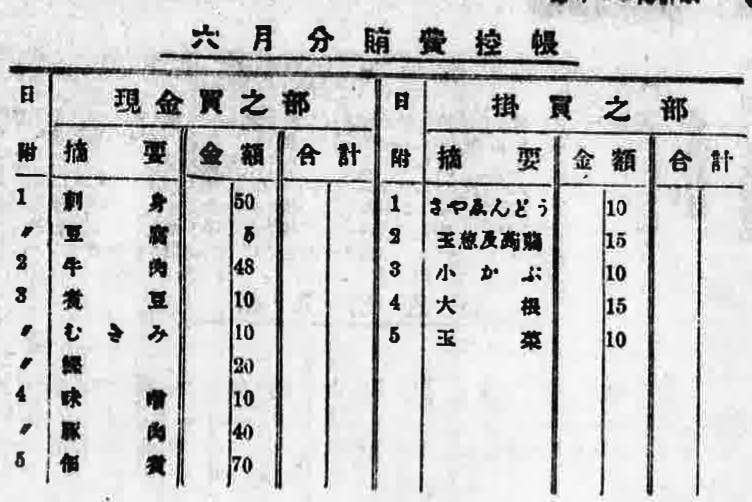 六月分賄費控帳
日附 現金買之部
摘要 金額 合計
1 刺身 50
〃 豆腐 5
2 牛肉 48
3 煮豆 10
〃 むきみ 10
〃 鰹 20
4 味噌 10
〃 豚肉 40
5 佃煮 70
日附 掛買之部
摘要 金額 合計
1 さやゑんどう 10
2 玉葱及蒟蒻 15
3 小かぶ 10
4 大根 15
5 玉菜 10